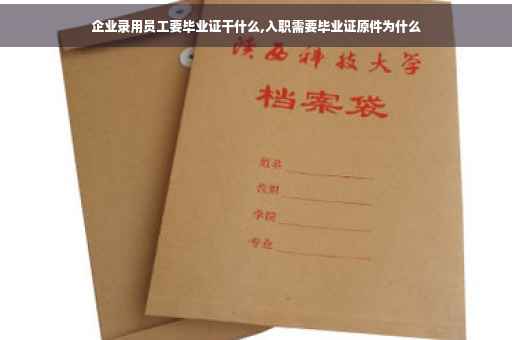 企业录用员工要毕业证干什么,入职需要毕业证原件为什么
陕西科技大学
档案袋
姓名
学院
专业